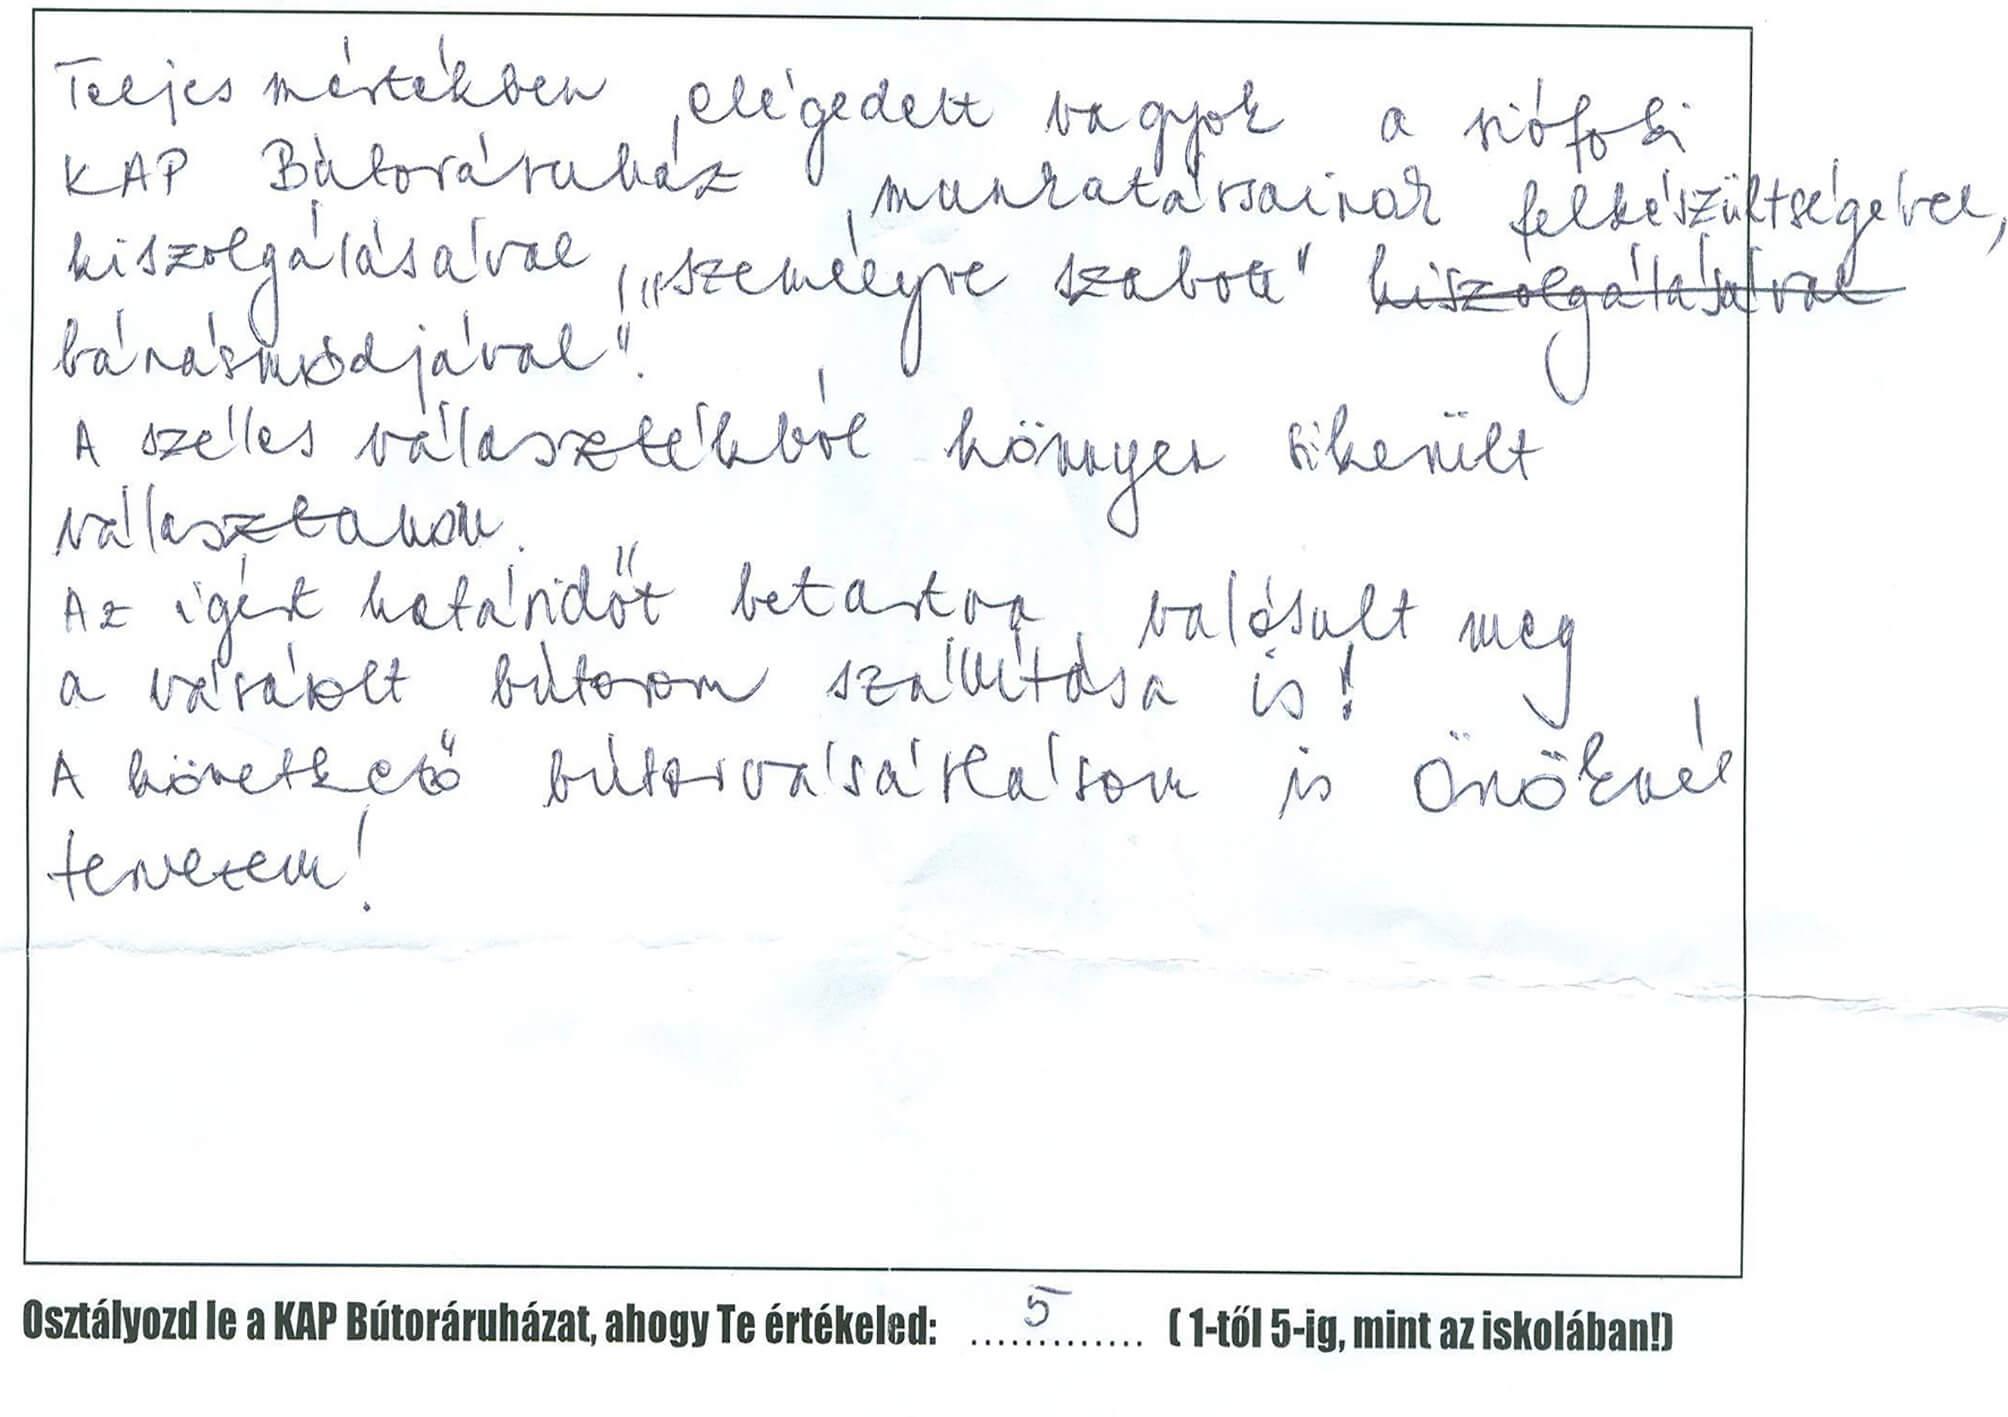 Teljes mértékben elégedett vagyok a siófoki
KAP Bútoráruház munkatársainak felkészültségével,
kiszolgálásával, "személyre szabott" kiszolgálásával
bánásmódjával".
A széles választékból könnyen sikerült
választanom.
Az ígért határidőt betartva valósult meg
a vásárolt bútorom szállítása is!
A következő bútorvásárlásom is Önöknél
tervezem!
Osztályozd le a KAP Bútoráruházat, ahogy Te értékeled: 5 ( 1-től 5-ig, mint az iskolában!)